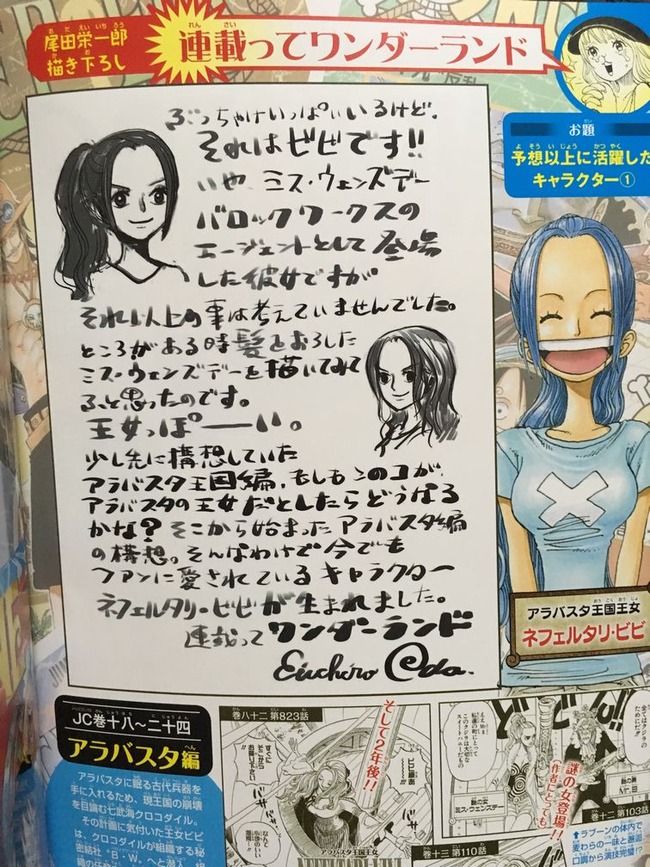 尾田栄一郎
描き下ろし
連載ってワンダーランド
お題
予想以上に活躍した
キャラクター①
ぶっちゃけいっぱいいるけど、
それはビビです!!
いや、ミス・ウェンズデー
バロックワークスの
エージェントとして登場
した彼女ですが
それ以上の事は考えていませんでした。
ところがある時髪をおろした
ミス・ウェンズデーを描いてみて
ふと思ったのです。
王女っぽーーい。
少し先に構想していた
アラバスタ王国編、もしもこのコが、
アラバスタの王女だとしたらどうなる
かな?そこから始まったアラバスタ編
の構想。そんなわけで今でも
ファンに愛されているキャラクター
ネフェルタリ・ビビが生まれました。
連載ってワンダーランド
Eiichiro Oda.
アラバスタ王国王女
ネフェルタリ・ビビ
JC巻十八〜二十四
アラバスタ編
アラバスタに眠る古代兵器を
手に入れるため、現王国の崩壊
を目論む七武海クロコダイル。
その計画に気付いた王女ビビ
は、クロコダイルが組織する秘
密結社“B・W”へと潜入
巻八十二 第823話
そして2年後!!
アラバスタ王国王女
巻十三 第110話
ミス・ウェンズデー
謎の女登場!!
作者にとっても
巻十二 第103話
↑ラブーンの体内で
麦わらの一味と邂逅
口調から演技完璧!?